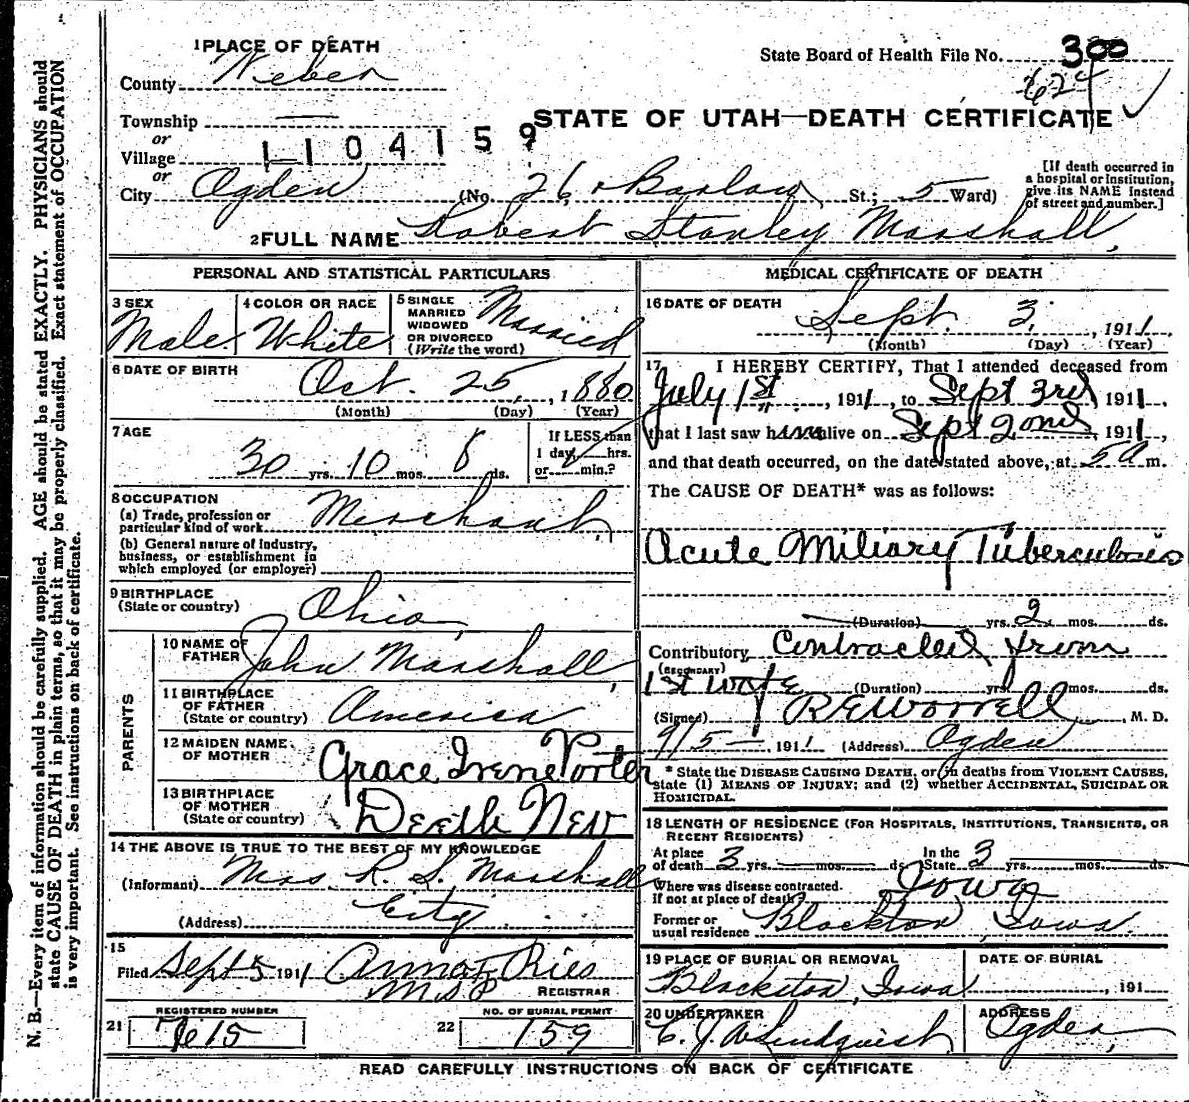 1 PLACE OF DEATH
State Board of Health File No. 300
County Weber
624
Township
STATE OF UTAH—DEATH CERTIFICATE
or
Village
1104159
or
City Ogden (No. 26 Barlow St.; 5 Ward)
[If death occurred in
a hospital or institution,
give its NAME instead
of street and number.]
2 FULL NAME Robert Stanley Marshall,
PERSONAL AND STATISTICAL PARTICULARS
3 SEX
Male
4 COLOR OR RACE
White
5 SINGLE
MARRIED
WIDOWED
OR DIVORCED
(Write the word)
Married
6 DATE OF BIRTH
Oct. 25, 1880
(Month) (Day) (Year)
7 AGE
30 yrs. 10 mos. 8 ds.
If LESS than
1 day, hrs.
or min.?
8 OCCUPATION
(a) Trade, profession or
particular kind of work Merchant,
(b) General nature of industry,
business, or establishment in
which employed (or employer)
9 BIRTHPLACE
(State or country) Ohio,
PARENTS
10 NAME OF
FATHER John Marshall,
11 BIRTHPLACE
OF FATHER
(State or country) America
12 MAIDEN NAME
OF MOTHER Grace Irene Porter
13 BIRTHPLACE
OF MOTHER
(State or country)
14 THE ABOVE IS TRUE TO THE BEST OF MY KNOWLEDGE
(Informant) Mrs. R. S. Marshall
(Address) City
15
Filed Sept 5 1911 Anna F. Ries
REGISTRAR
REGISTERED NUMBER
21
NO. OF BURIAL PERMIT
22 159
MEDICAL CERTIFICATE OF DEATH
16 DATE OF DEATH
Sept. 3, 1911,
(Month) (Day) (Year)
17 I HEREBY CERTIFY, That I attended deceased from
July 1st, 1911, to Sept 3rd 1911,
that I last saw him alive on Sept 2nd 1911,
and that death occurred, on the date stated above, at 5 a m.
The CAUSE OF DEATH* was as follows:
Acute Miliary Tuberculosis
(Duration) yrs. 2 mos. ds.
Contributory Contracted from
(SECONDARY)
1st wife (Duration) yrs. mos. ds.
(Signed) R E Worrell, M. D.
9/5— 1911 (Address) Ogden
* State the DISEASE CAUSING DEATH, or in deaths from VIOLENT CAUSES,
state (1) MEANS OF INJURY; and (2) whether ACCIDENTAL, SUICIDAL OR
HOMICIDAL.
18 LENGTH OF RESIDENCE (FOR HOSPITALS, INSTITUTIONS, TRANSIENTS, OR
RECENT RESIDENTS)
At place
of death 3 yrs. mos. ds.
In the
State 3 yrs. mos. ds.
Where was disease contracted.
if not at place of death? Iowa
Former or
usual residence Blockton, Iowa.
19 PLACE OF BURIAL OR REMOVAL
Blockston, Iowa
DATE OF BURIAL
, 191
20 UNDERTAKER
C. J. A. Lindquist,
ADDRESS
Ogden,
READ CAREFULLY INSTRUCTIONS ON BACK OF CERTIFICATE
N. B.—Every item of information should be carefully supplied. AGE should be stated EXACTLY. PHYSICIANS should
state CAUSE OF DEATH in plain terms, so that it may be properly classified. Exact statement of OCCUPATION
is very important. See instructions on back of certificate.